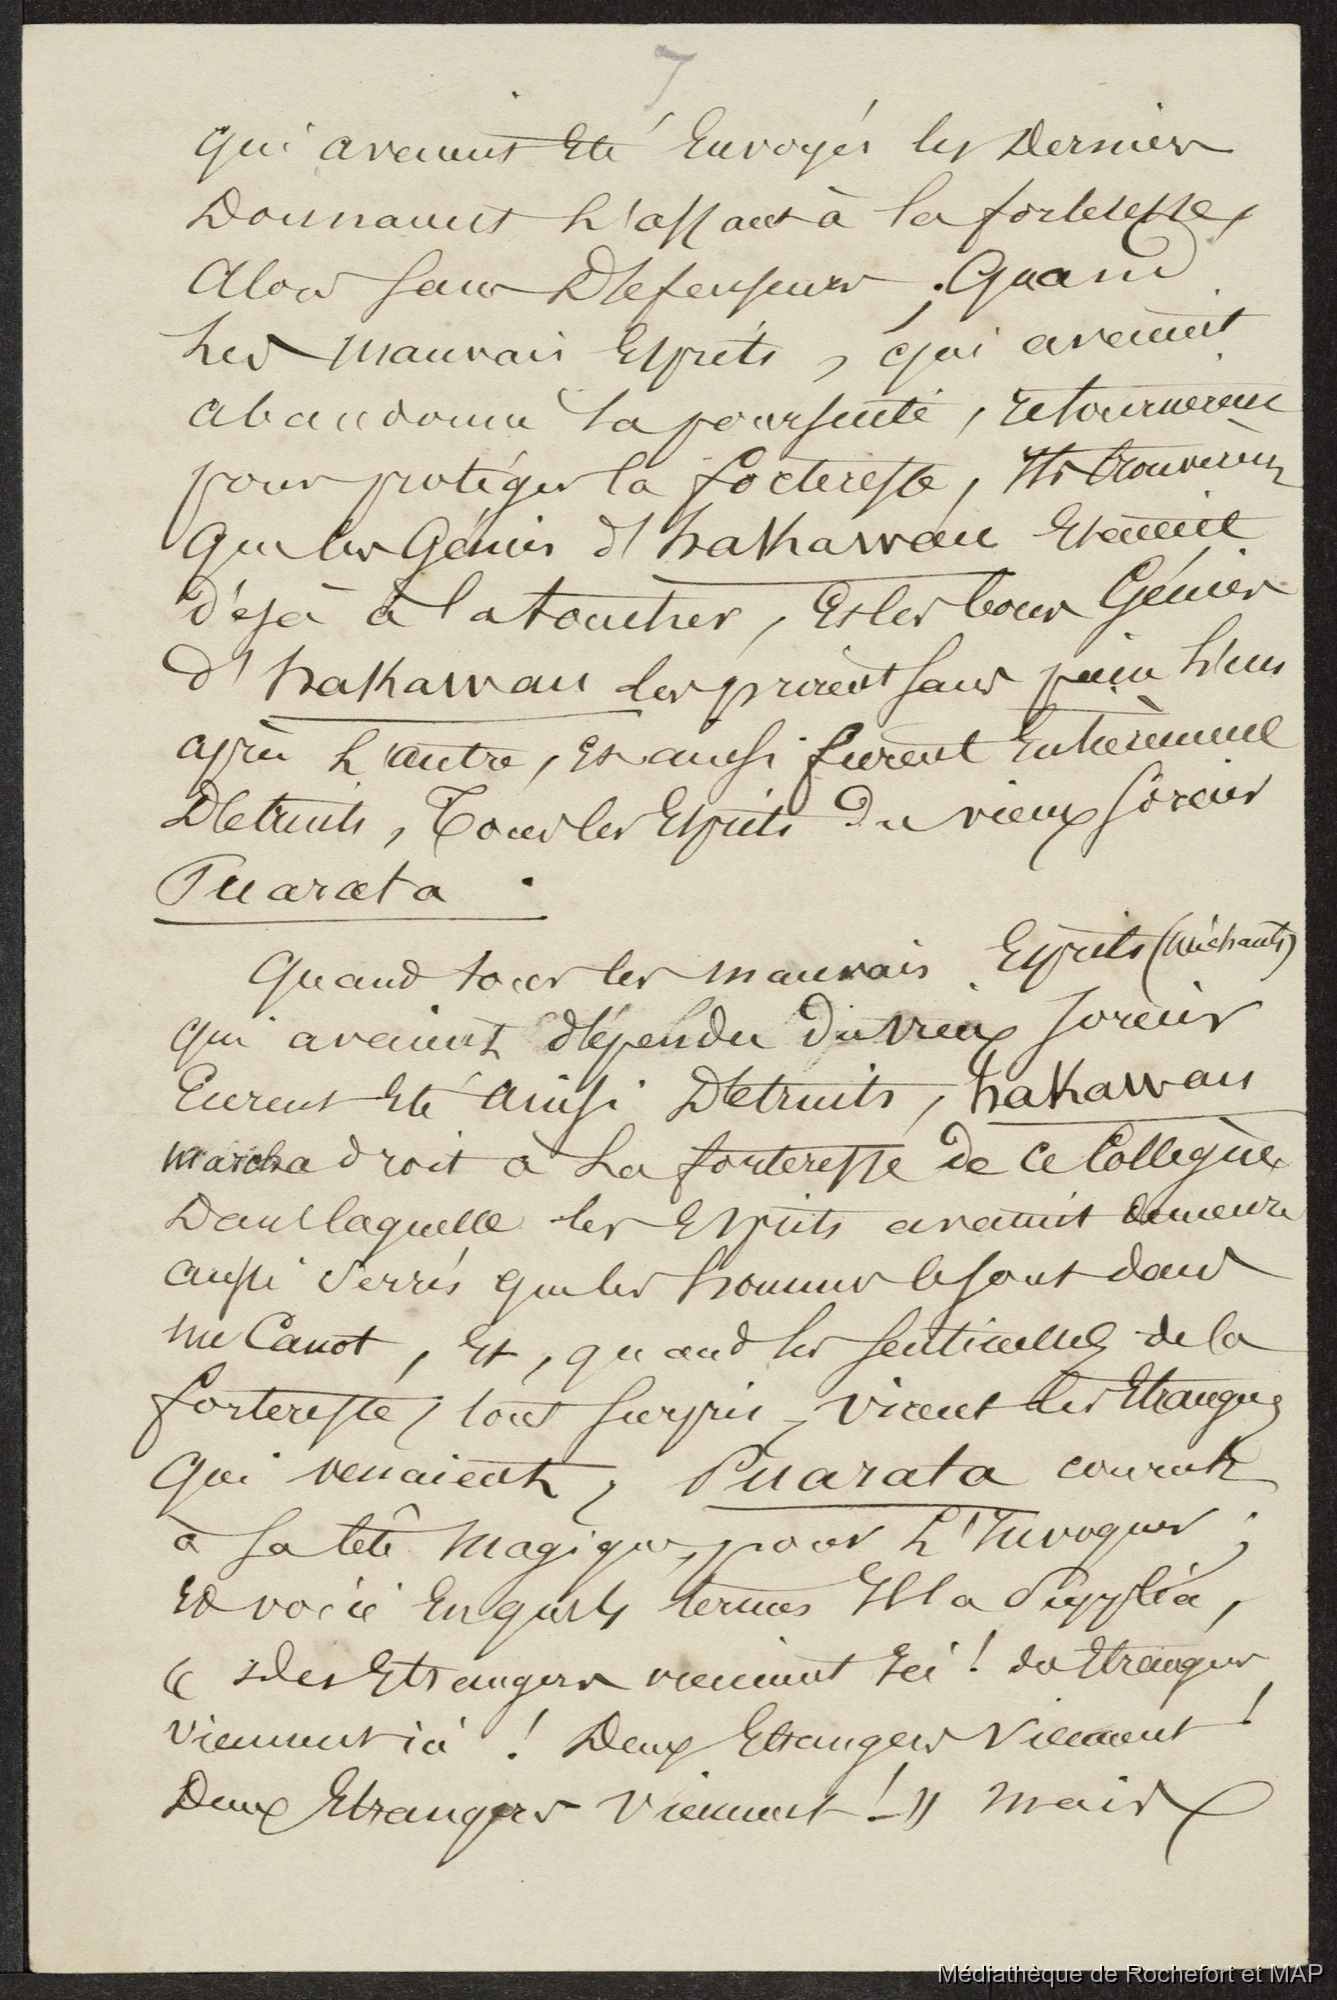 7
qui avaient été Envoyés les Derniers
Donnaient L'assaut à la forteresse,
Alors sans Défenseurs ; Quand
Les Mauvais Esprits, qui avaient
abandonné La poursuite, retournèrent
pour protéger la forteresse, Ils trouvèrent
Que les Génies d'hakawau Etaient
déjà à la toucher, Et les bons Génies
d'hakawau les prirent sans peine L'un
après L'autre, Et ainsi furent Entièrement
Détruits, Tous les Esprits du vieux Sorcier
Puarata.
Quand tous les mauvais Esprits (Méchants)
qui avaient dépendu du vieux Sorcier
Eurent Eté Ainsi Détruits, hakawau
marcha droit à La forteresse de ce Collègue,
Dans laquelle les Esprits avaient demeuré
aussi Serrés que les hommes le sont dans
un Canot, Et, quand les sentinelles de la
forteresse, tout surpris, virent les Etrangers
Qui venaient, Puarata courut
à sa tête Magique, pour L'Invoquer ;
Et voici En quels termes Il la Supplia,
« Des Etrangers viennent Ici ! des Etrangers
Viennent ici ! Deux Etrangers Viennent !
Deux Etrangers Viennent ! » Mais
Médiathèque de Rochefort et MAP